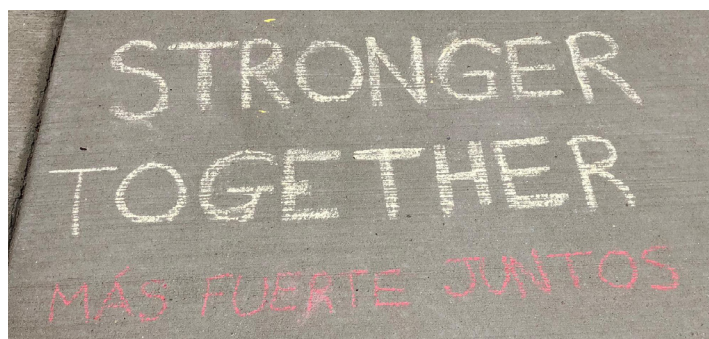 STRONGER
TOGETHER
MÁS FUERTE JUNTOS